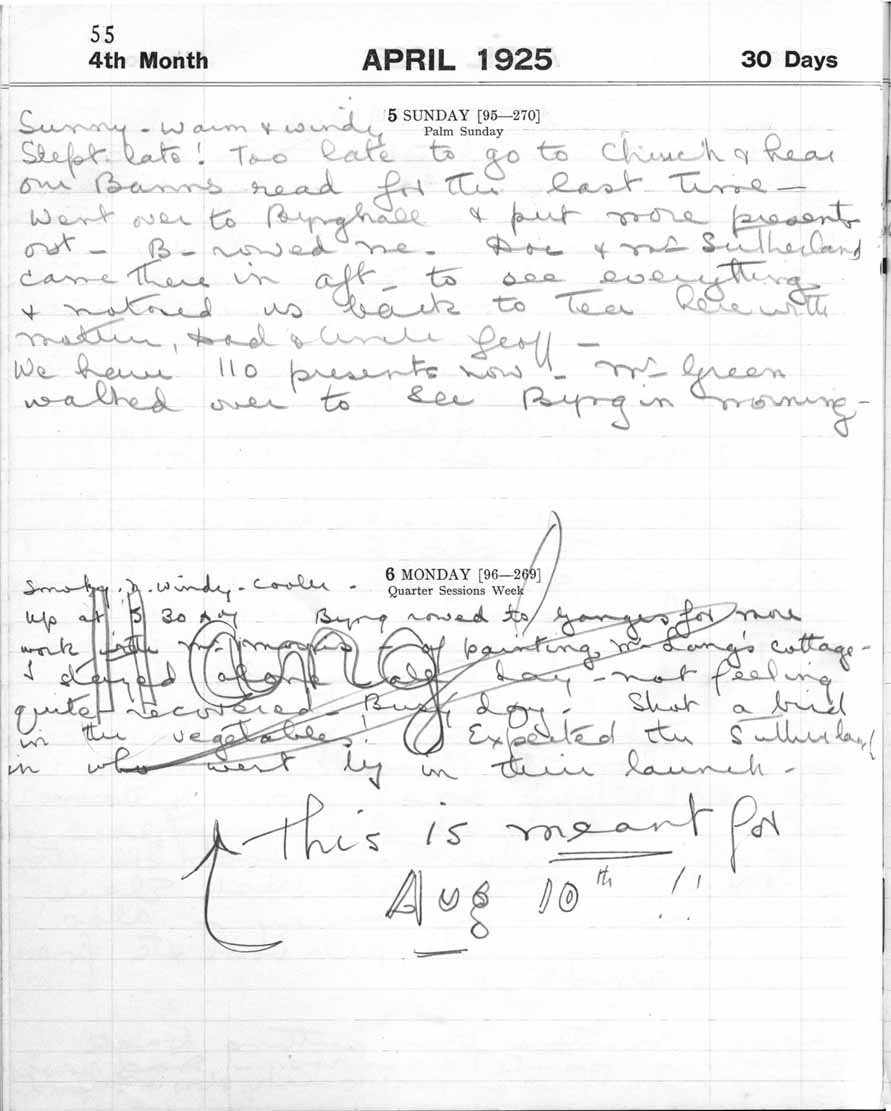 55
4th Month APRIL 1925 30 Days
5 SUNDAY [95—270]
Palm Sunday
Sunny - warm & windy
Slept late! Too late to go to Church & hear
our Banns read for the last time —
Went over to Byrghall & put more presents
out - B- rowed me. Doc & Mrs Sutherland
came there in aft to see everything
& motored us back to tea here with
Mother, Dad & Uncle Geoff —
We have 110 presents now! - Mrs Green
walked over to see Byrg in morning -
6 MONDAY [96—269]
Quarter Sessions Week
Smoky & windy - cooler -
Up at 5 30 Byrg rowed to Ganges for more
work with Mr Morris - of painting Mr Lang's cottage -
I stayed alone all day - not feeling
quite recovered - Busy day. Shot a bird
in the vegetables! Expected the Sutherland
in who went by in their launch -
Hang
This is meant for
Aug 10th !!